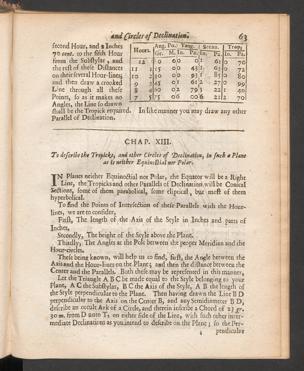 and Circles of Declination. 63
second Hour, and 2 Inches
70 cent. to the fifth Hour
from the Substylar, and
the rest of these Distances
on their several Hour-lines,
and then draw a crooked
Line through all these
Points, so as it makes no
Angles, the Line so drawn
shall be the Tropick required. In like manner you may draw any other
Parallel of Declination.
Hours. Ang. Po. Tang. Secan. Trop.
Gr. M. In. Pa. In. Pa.
CHAP. XIII.
To describe the Tropicks, and other Circles of Declination, in such a Plane
as is neither Equinoctial nor Polar.
IN Planes neither Equinoctial nor Polar, the Equator will be a Right
Line, the Tropicks and other Parallels of Declination will be Conical
Sections, some of them parabolical, some eliptical, but most of them
hyperbolical.
To find the Points of Intersection of these Parallels with the Hour-
lines, we are to consider,
First, The length of the Axis of the Style in Inches and parts of
Inches,
Secondly, The height of the Style above the Plane.
Thirdly, The Angles at the Pole between the proper Meridian and the
Hour-circles.
These being known, will help us to find, first, the Angle between the
Axis and the Hour-lines on the Plane; and then the distance between the
Center and the Parallels. Both these may be represented in this manner,
Let the Triangle A B C be made equal to the Style belonging to your
Plane, A C the Substylar, B C the Axis of the Style, A B the length of
the Style perpendicular to the Plane. Then having drawn the Line B D
perpendicular to the Axis on the Center B, and any Semidiameter B D,
describe an occult Ark of a Circle, and therein inscribe a Chord of 23 gr.
30 m. from D unto T, on either side of the Line, with such other inter-
mediate Declinations as you intend to describe on the Plane; so the Per-
pendicular